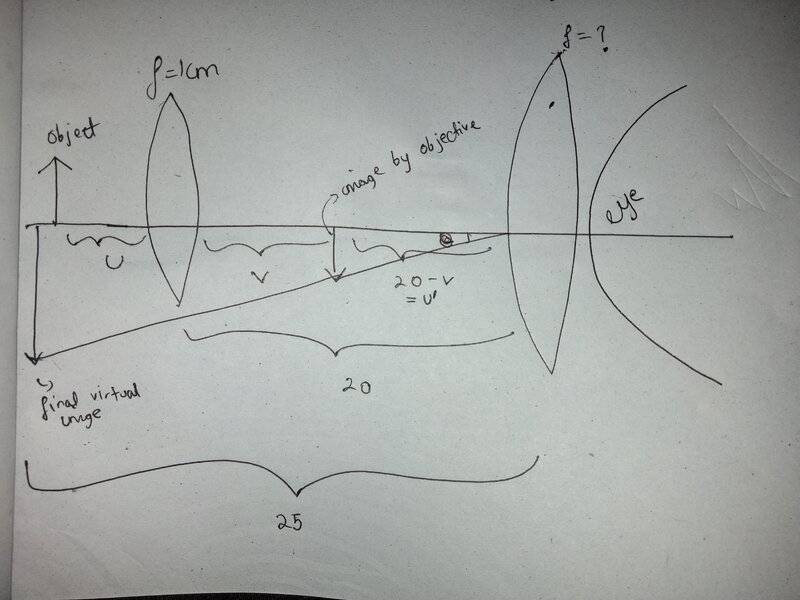 f = ?
f = 1cm
object
image by objective
eye
U
V
20 - v
= u'
20
final virtual
image
25